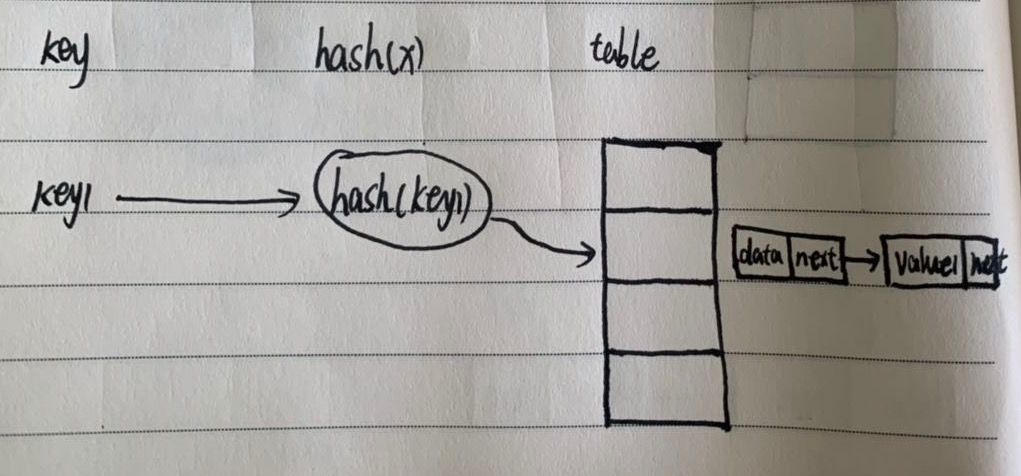 key hash(x) table
key1 hash(key1)
data next value1 next